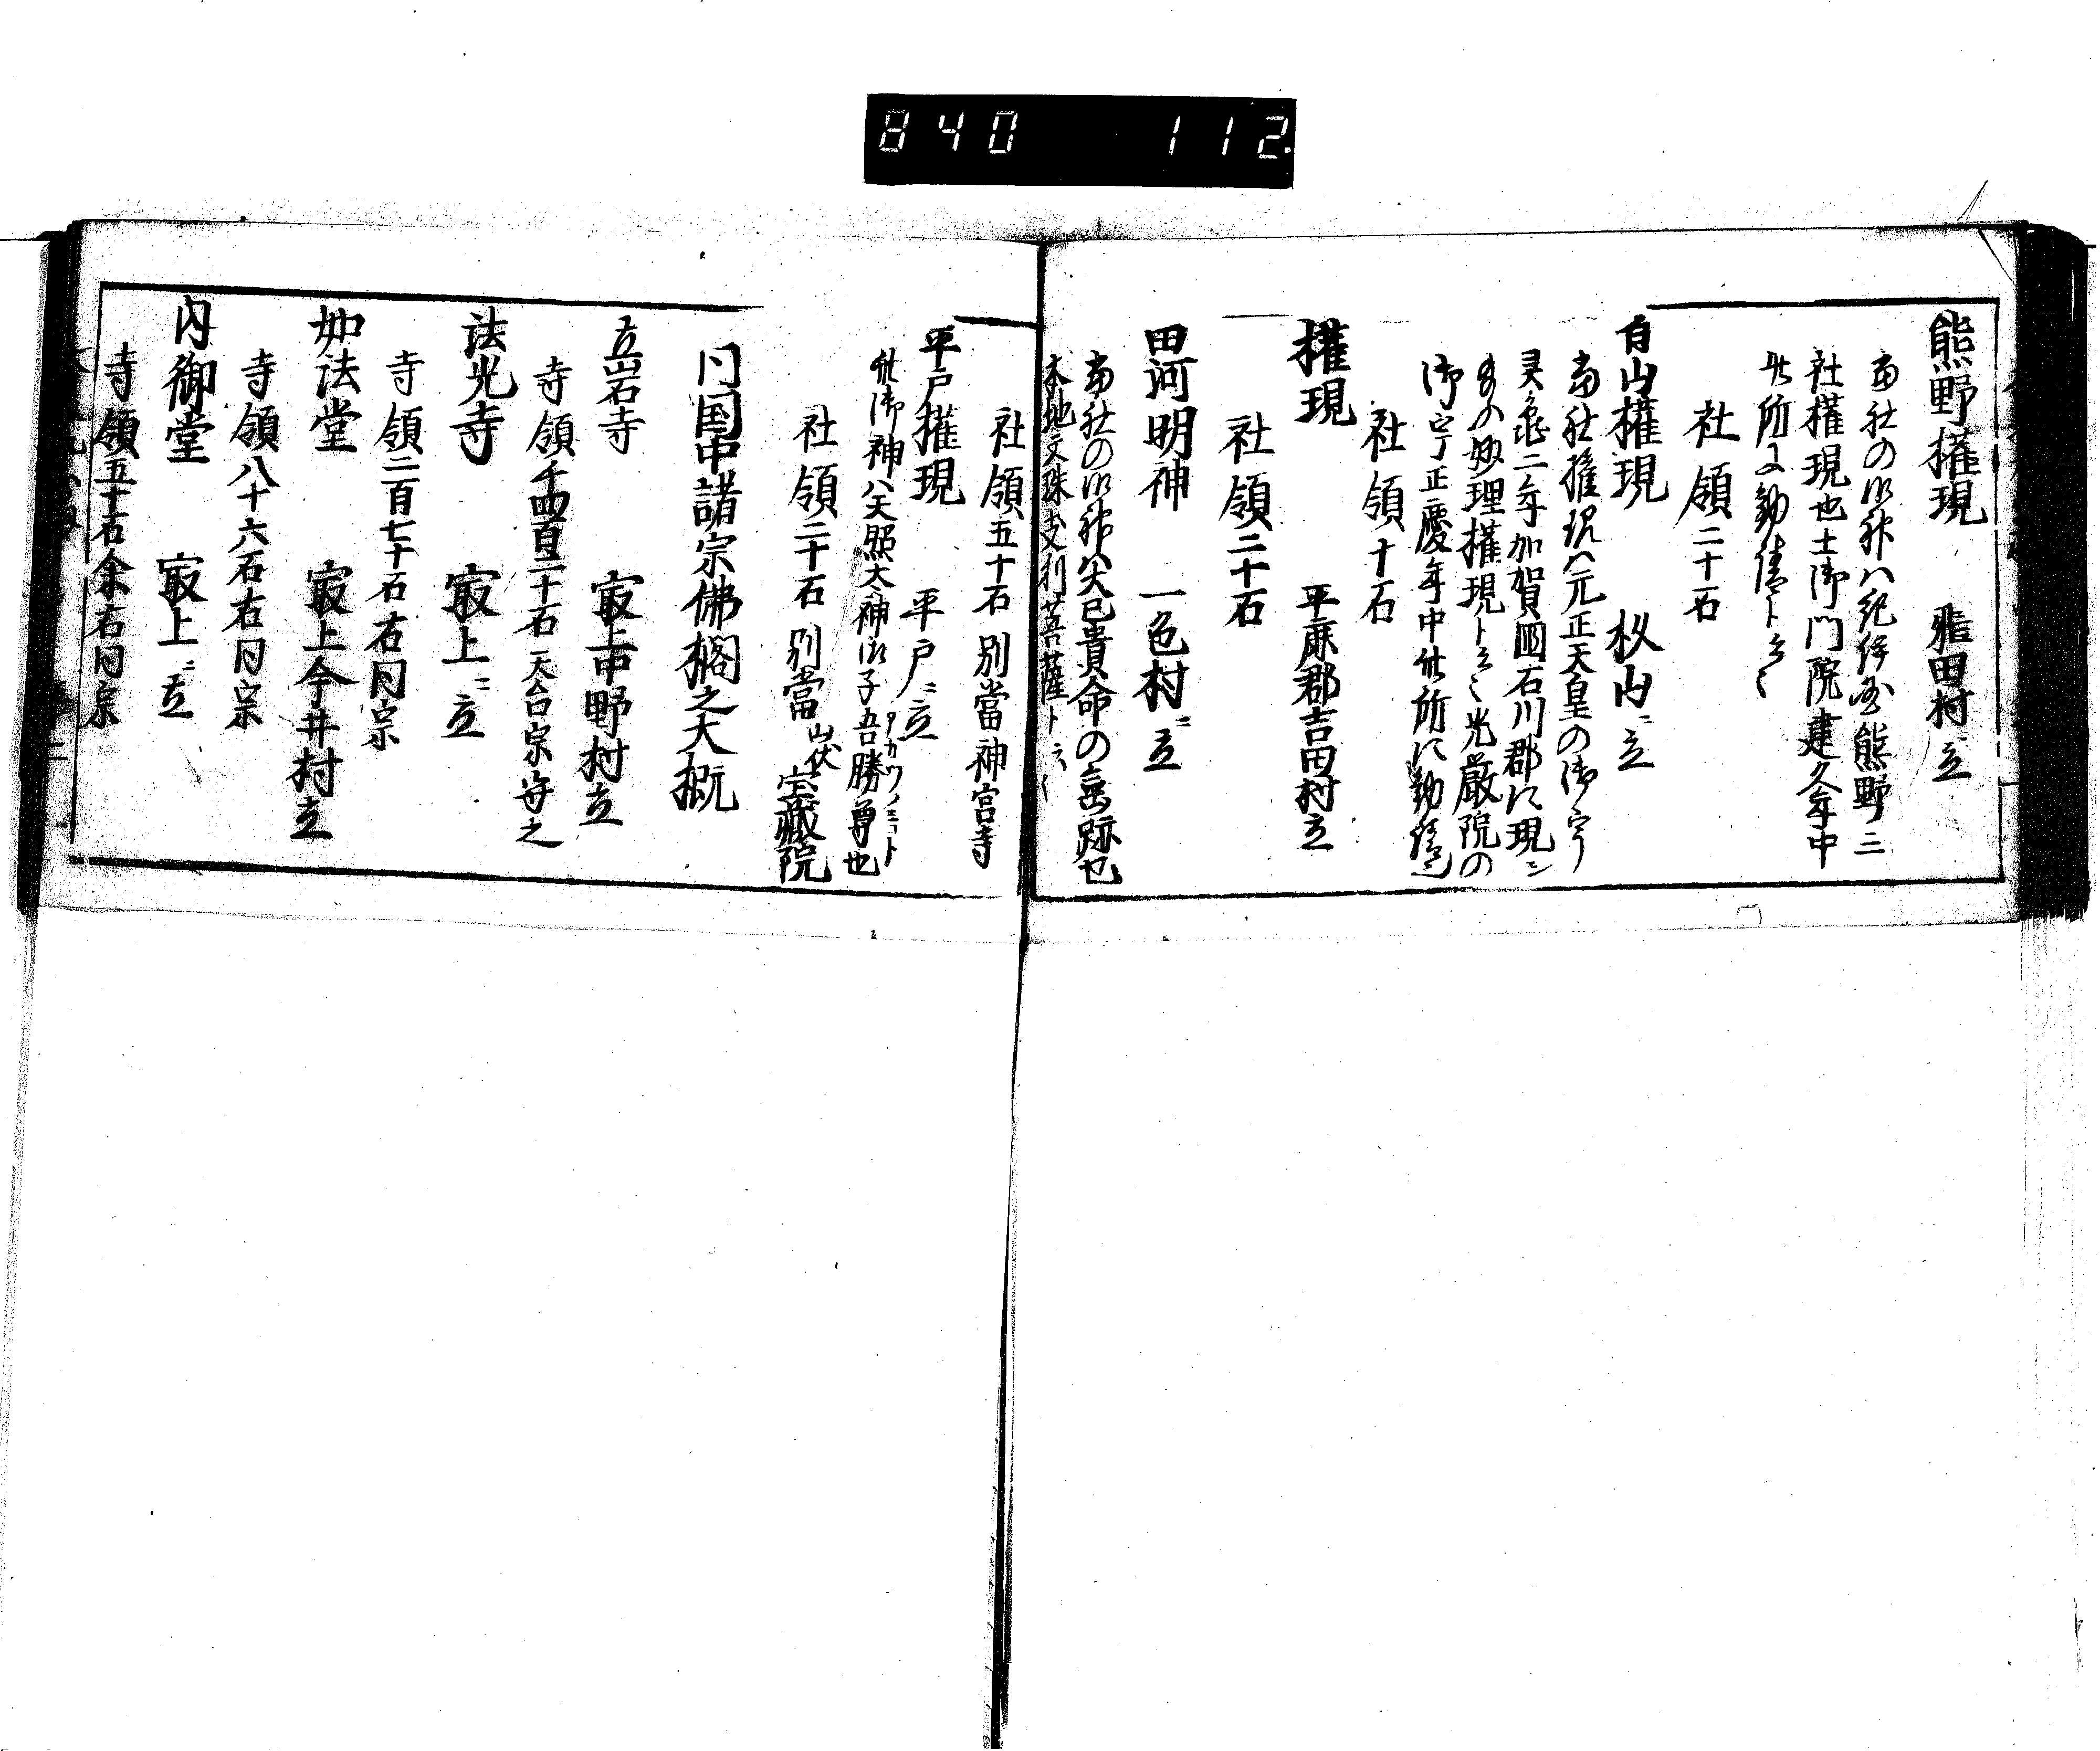 840 112.
熊野權現 雅田村ニ立
當社の御神ハ紀伊国熊野三
社權現也土御門院建久年中
此所よ勧請ト云々
社領二十石
白山權現 杦山ニ立
當社權現ハ元正天皇の御宇
灵亀二年加賀國石川郡に現シ
玉の妙理權現ト云々光厳院の
御宇正慶年中此所に勧請ス
社領十石
權現 平麻郡吉田村立
社領二十石
田河明神 一色村ニ立
當社の御神ハ大已貴命の垂跡也
本地文珠支利菩薩ト云々
社領五十石 別當神宮寺
平戸權現 平戸ニ立
此御神ハ天照太神御子吾勝尊也
アカツノミコト
社領二十石 別當 山伏 宝藏院
同国中諸宗佛閣之大概
立石寺 㝡上中野村立
寺領千四百二十石 天台宗守之
法光寺 㝡上ニ立
寺領二百七十石右同宗
如法堂 㝡上今井村立
寺領八十六石右同宗
内御堂 㝡上ニ立
寺領五十石余右同宗